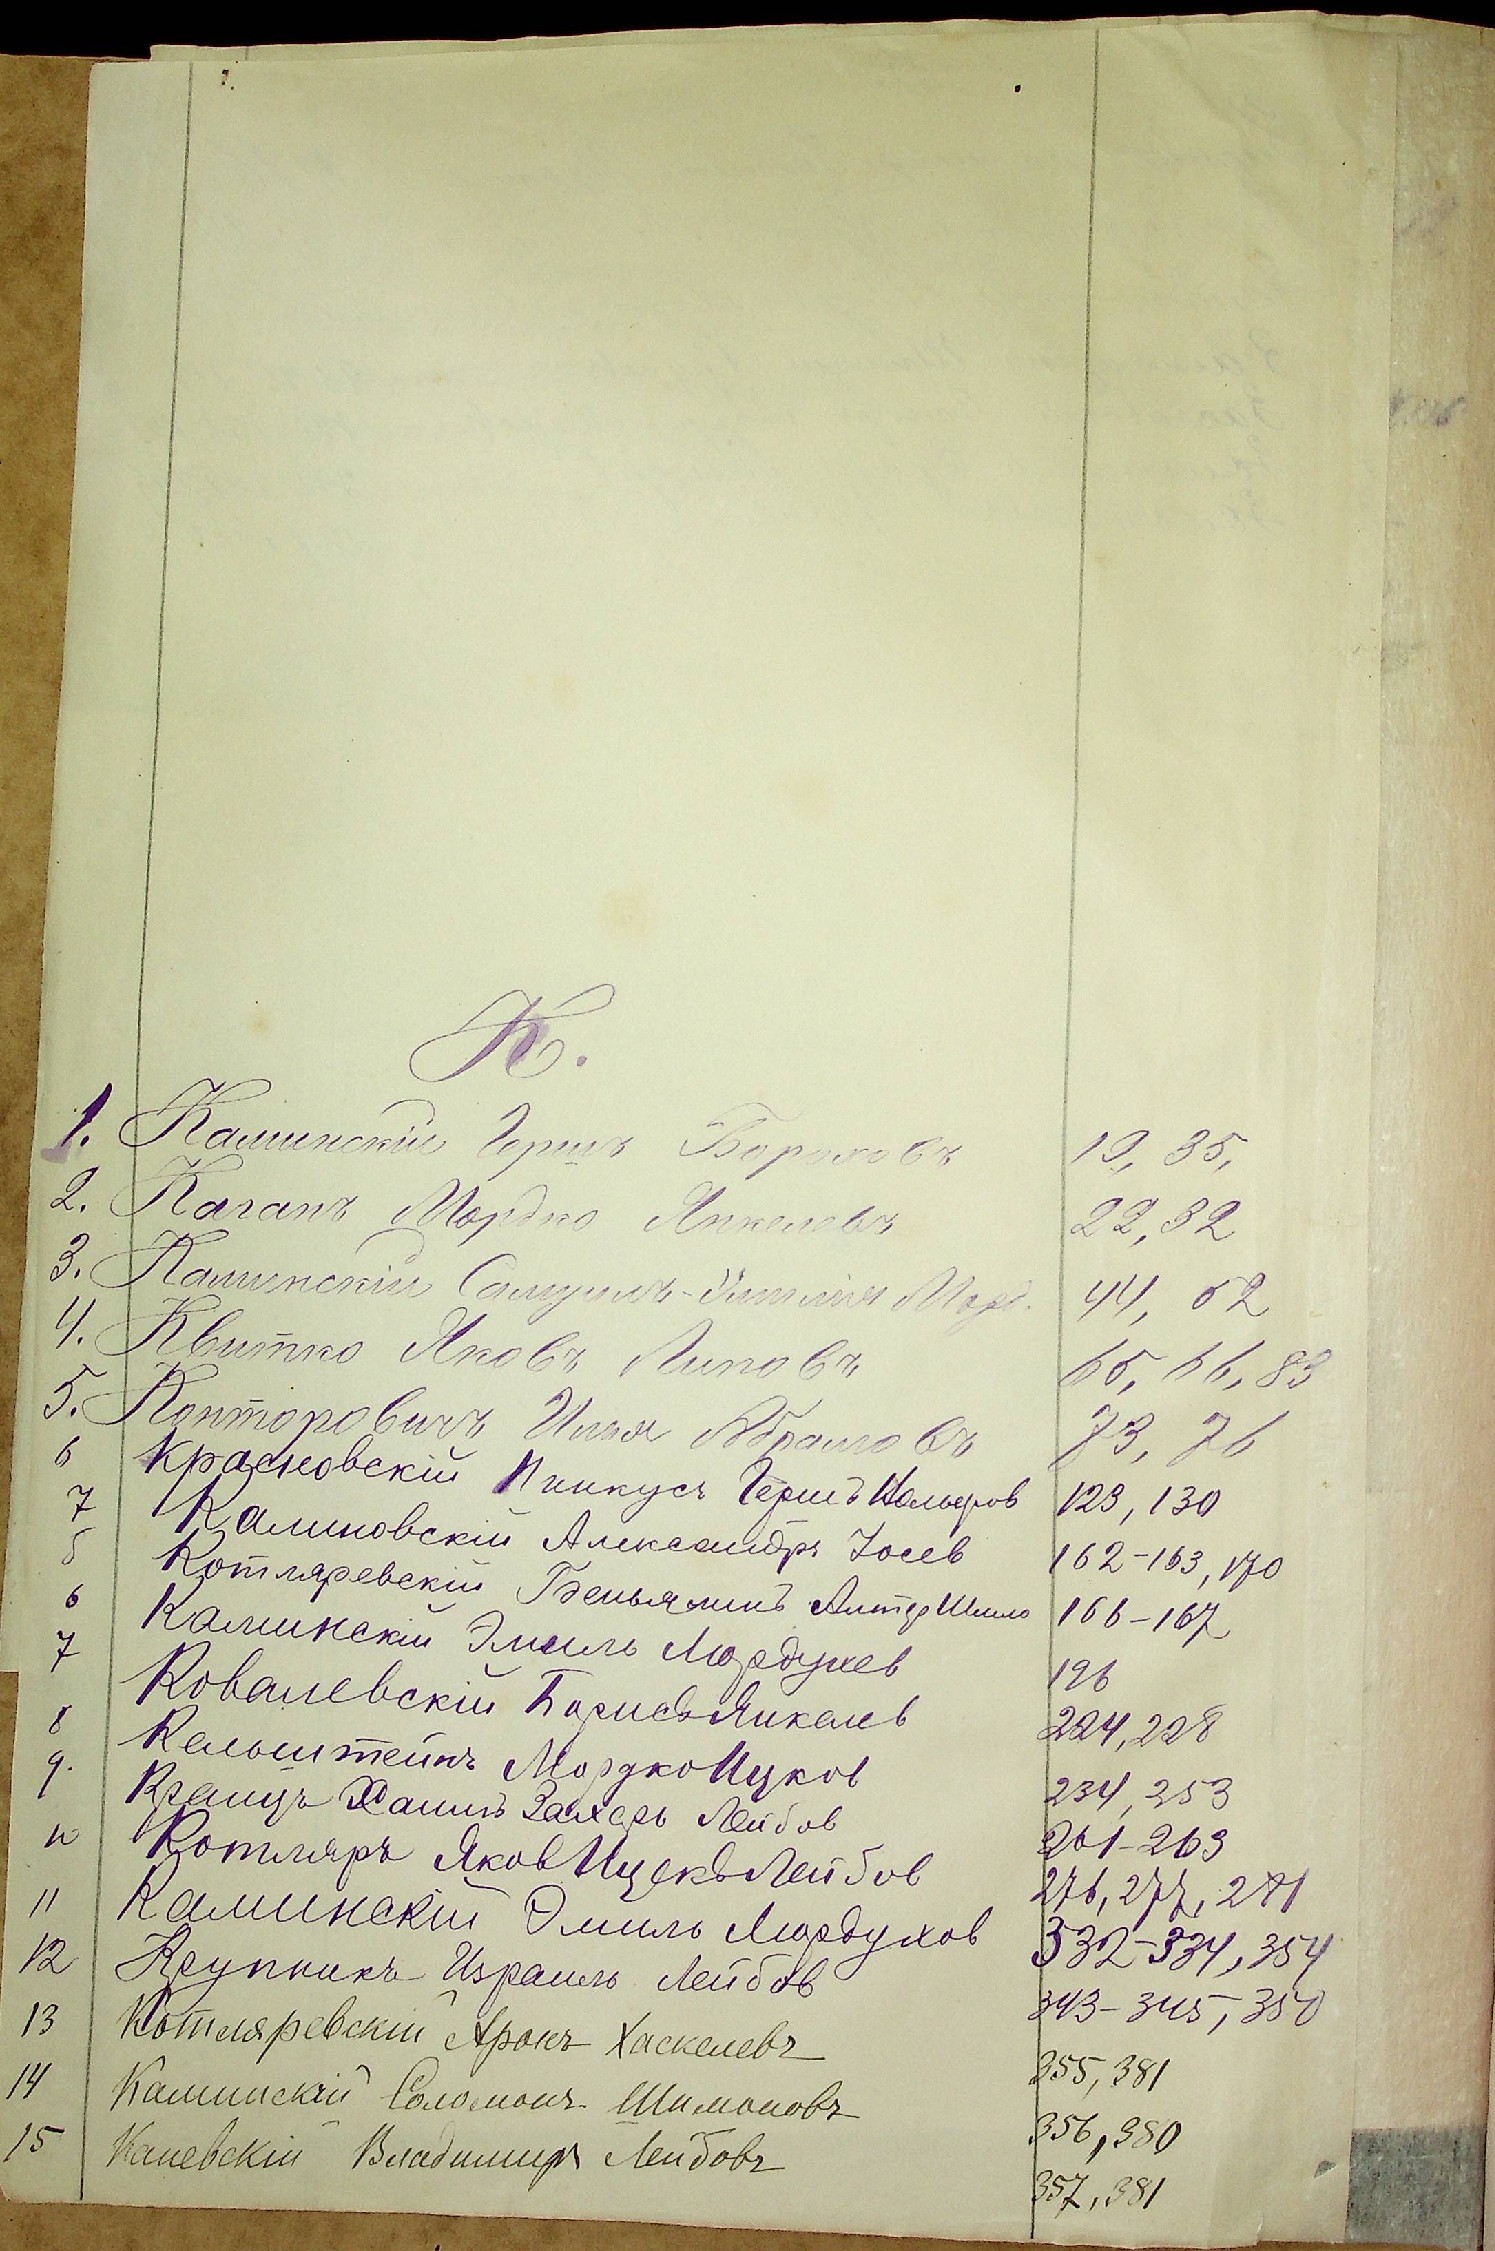 К.
1. Каминскій Гершъ Бороховъ 19, 35,
2. Каганъ Мордко Янкелевъ 22, 32
3. Каминскій Самуилъ- Морд. 44, 62
4. Квитко Яковъ Липовъ 65, 66, 83
5. Канторовичъ Илья Абрамовъ 73, 76
6 Красновскій Пинкусъ Гершъ 129, 130
7 Калиновскій Александръ Іосев 162-163, 170
8 Котляревскій Беньяминъ Алтер Шмило 166-167
6 Каминскій Эмиль Мордухов 196
7 Ковалевскій Борисъ Янкелев 224, 228
8 Кельштейнъ Мордко Ицков 234, 253
9. Кранцъ Хаимъ Захаръ Лейбов 261-263
10 Котляръ Яков Ицекъ Лейбов 276, 277, 281
11 Каминскій Эмиль Мордухов 332-334, 354
12 Крупникъ Израиль Лейбов 343-345, 350
13 Котляревскій Аронъ Хаскелевъ 355, 381
14 Каминскій Соломонъ Шимоновъ 356, 380
15 Каневскій Владимиръ Лейбовъ 357, 381